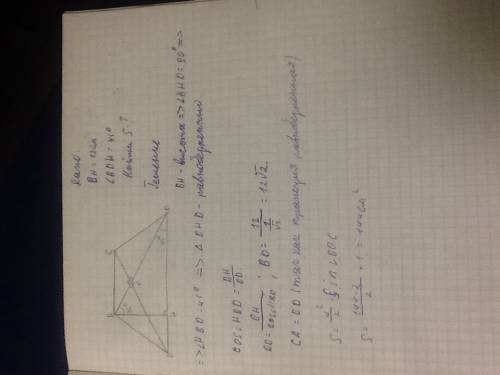 Дано
BH = 12см
∠BDH = 45°
Найти S-?
Решение
BH - высота => ∠BHD = 90° =>
=> ∠HBD = 45° => △BHD - равнобедренный
cos∠HBD = BH/BD
BD = BH/cosHBD ; BD = 12/(1/√2) = 12√2.
CA = BD (так как трапеция равнобедренная)
S = d²/2 · sin∠BOC
S = 144·2/2 · 1 = 144 см²
B
C
O
H
D